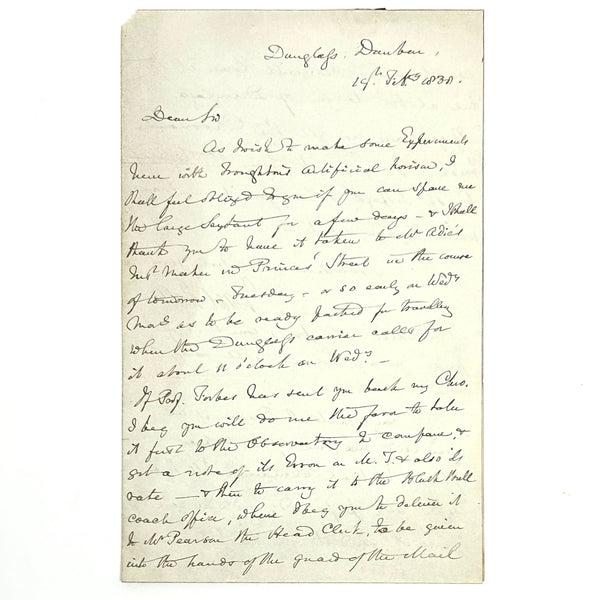 Dunglass. Dunbar,
19th Feby 1838.
Dear Sir
As I wish to make some Experiments
here with Troughton's Artificial horison, I
shall feel obliged to you if you can spare me
the large Sextant for a few days - & I shall
thank you to have it taken to Mr Adie's
Inst Maker in Princes' Street in the course
of tomorrow - Tuesday - or so early on Wedy
as to be ready packed for travelling
when the Dunglass carrier calls for
it about 11 o'clock on Wedy. -
If Prof. Forbes has sent you back my Chro.
I beg you will do me the favor to take
it first to the Observatory to compare, &
get a note of its Error on M. T. & also its
rate - & then to carry it to the Black Bull
coach office, where I beg you to deliver it
to Mr Pearson the Head Clerk, to be given
into the hands of the guard of the Mail